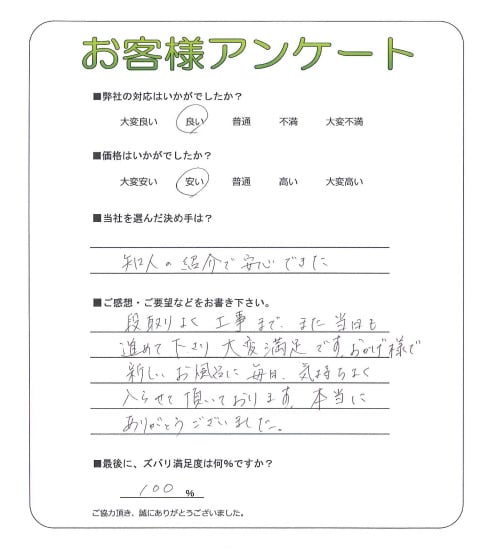 お客様アンケート
■弊社の対応はいかがでしたか?
大変良い 良い 普通 不満 大変不満
■価格はいかがでしたか?
大変安い 安い 普通 高い 大変高い
■当社を選んだ決め手は?
知人の紹介で安心できた
■ご感想・ご要望などをお書き下さい。
段取りよく 工事まで、また当日も
進めて下さり 大変満足です。おかげ様で
新しいお風呂に毎日、気持ちよく
入らせて頂いております。本当に
ありがとうございました。
■最後に、ズバリ満足度は何%ですか?
100 %
ご協力頂き、誠にありがとうございました。